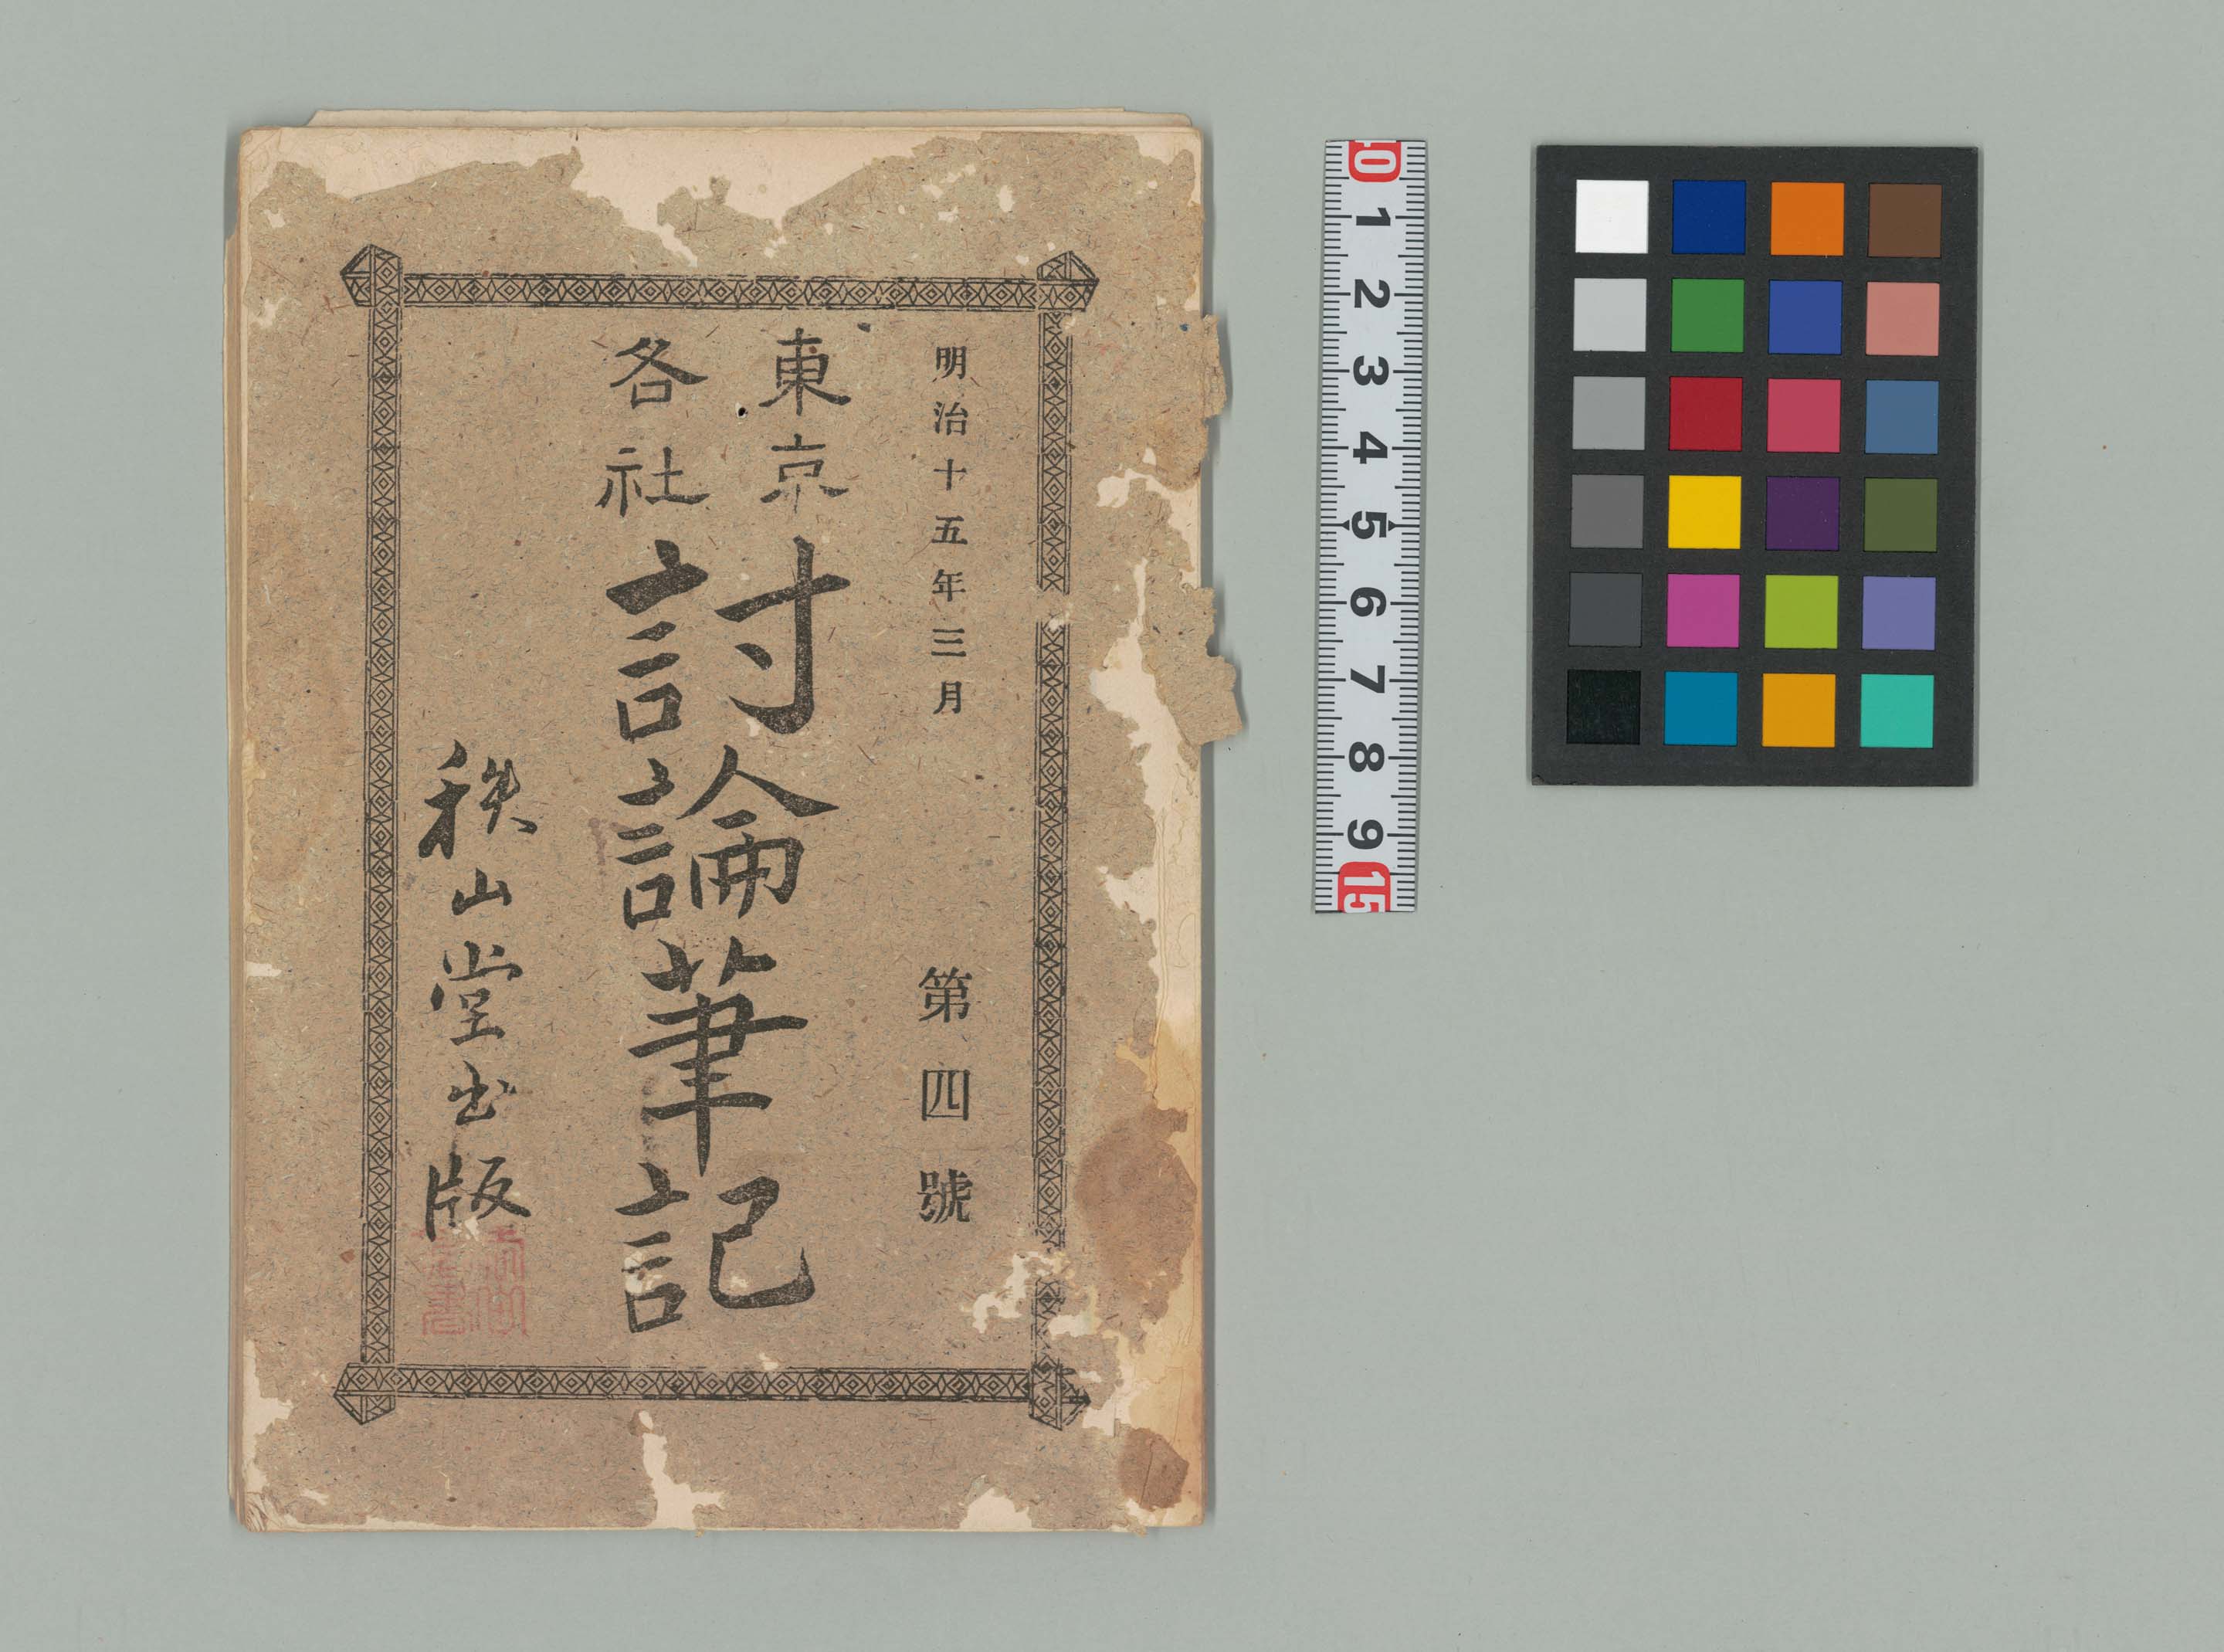 明治十五年三月
第四號
東京
各社
討論筆記
秩山堂出版
10
1
2
3
4
5
6
7
8
9
15